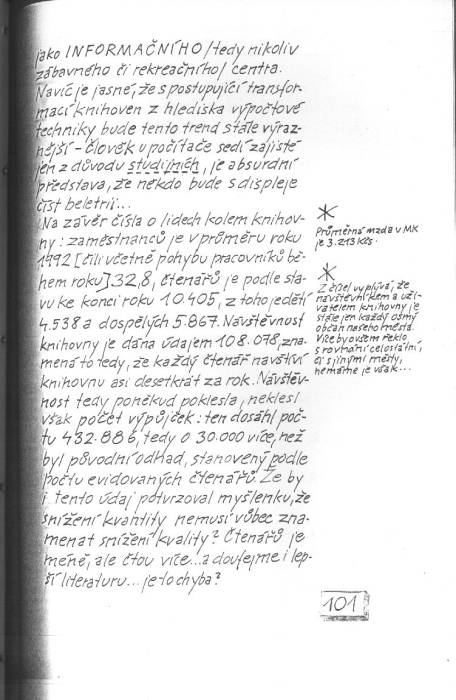 jako INFORMAČNÍHO /tedy nikoliv
zábavného či rekreačního/ centra.
Navíc je jasné, že s postupující transfor-
mací knihoven z hlediska výpočtové
techniky bude tento trend stále výraz-
nější – člověk u počítače sedí zajisté
jen z důvodu studijních, je absurdní
představa, že někdo bude s displeje
číst beletrii...
Na závěr čísla o lidech kolem knihov-
ny: zaměstnanců je v průměru roku
1992 [čili včetně pohybu pracovníků bě-
hem roku] 32,8, čtenářů je podle sta-
vu ke konci roku 10.405, z toho je dětí
4.538 a dospělých 5.867. Návštěvnost
knihovny je dána údajem 108.078, zna-
mená to tedy, že každý čtenář navštíví
knihovnu asi desetkrát za rok. Návštěv-
nost tedy poněkud poklesla, neklesl
však počet výpůjček: ten dosáhl poč-
tu 432.886, tedy o 30.000 více, než
byl původní odhad, stanovený podle
počtu evidovaných čtenářů. Že by
i tento údaj potvrzoval myšlenku, že
snížení kvantity nemusí vůbec zna-
menat snížení kvality? Čtenářů je
méně, ale čtou více... a doufejme i lep-
ší literaturu... je to chyba?
*
Průměrná mzda v MK
je 3.213 Kčs.
*
Z čísel vyplývá, že
návštěvníkem a uži-
vatelem knihovny je
stále jen každý osmý
občan našeho města.
Více by ovšem řeklo
srovnání celostátní,
či s jinými městy,
nemáme je však...
101